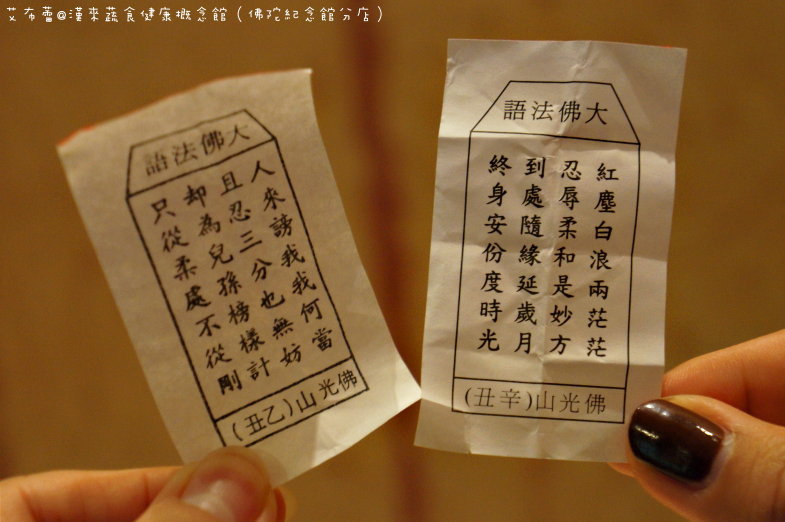 艾布蕾@漢來蔬食健康概念館(佛陀紀念館分店)
大佛法語
人來謗我我何當
且忍三分也無妨
却為兒孫榜樣計
只從柔處不從剛
佛光山(乙丑)
大佛法語
紅塵白浪兩茫茫
忍辱柔和是妙方
到處隨緣延歲月
終身安份度時光
佛光山(辛丑)